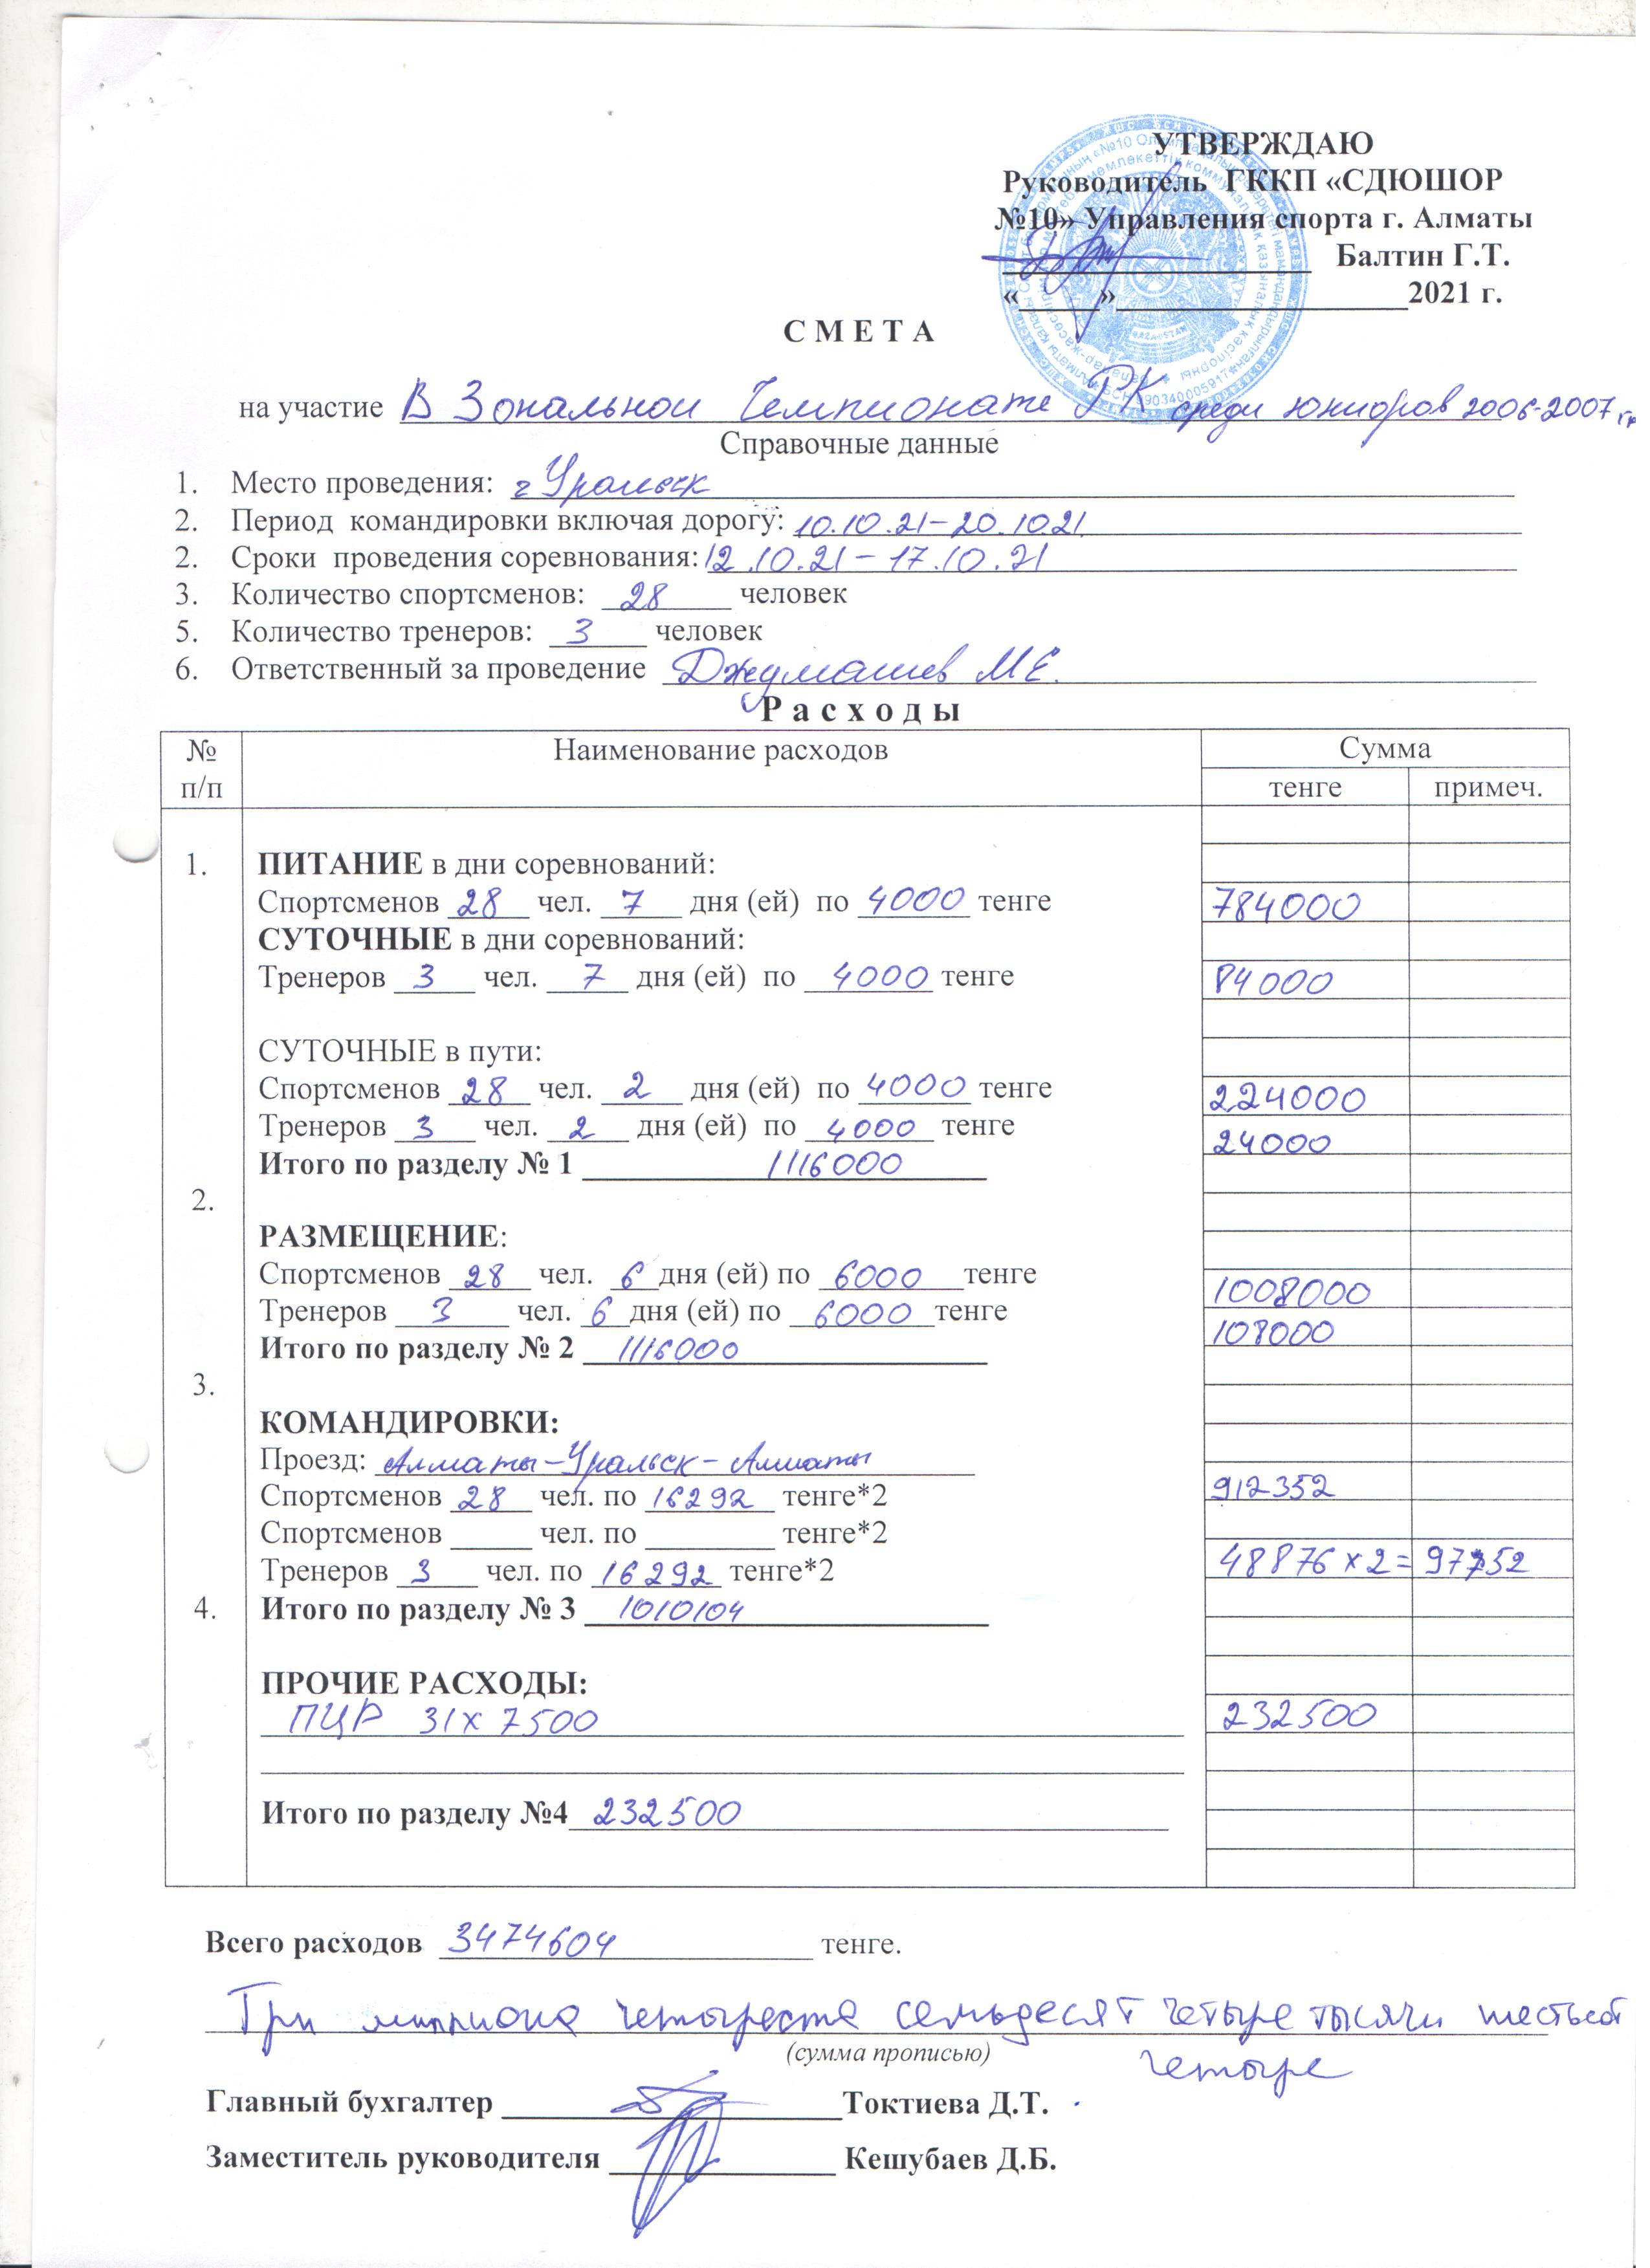 УТВЕРЖДАЮ
Руководитель ГККП «СДЮШОР
№10» Управления спорта г. Алматы
Балтин Г.Т.
«_____»__________________2021 г.
С М Е Т А
на участие В Зональном Чемпионате РК среди юниоров 2006-2007 гр
Справочные данные
1. Место проведения: г Уральск
2. Период командировки включая дорогу: 10.10.21-20.10.21.
2. Сроки проведения соревнования: 12.10.21-17.10.21
3. Количество спортсменов: 28 человек
5. Количество тренеров: 3 человек
6. Ответственный за проведение Джумашев М Е.
Р а с х о д ы
№ п/п Наименование расходов Сумма
тенге примеч.
1. ПИТАНИЕ в дни соревнований:
Спортсменов 28 чел. 7 дня (ей) по 4000 тенге 784000
СУТОЧНЫЕ в дни соревнований:
Тренеров 3 чел. 7 дня (ей) по 4000 тенге 84000
СУТОЧНЫЕ в пути:
Спортсменов 28 чел. 2 дня (ей) по 4000 тенге 224000
Тренеров 3 чел. 2 дня (ей) по 4000 тенге 24000
Итого по разделу № 1 1116000
2.
РАЗМЕЩЕНИЕ:
Спортсменов 28 чел. 6 дня (ей) по 6000 тенге 1008000
Тренеров 3 чел. 6 дня (ей) по 6000 тенге 108000
Итого по разделу № 2 1116000
3.
КОМАНДИРОВКИ:
Проезд: Алматы-Уральск-Алматы
Спортсменов 28 чел. по 16292 тенге*2 912352
Спортсменов ______ чел. по _________ тенге*2
Тренеров 3 чел. по 16292 тенге*2 48876 x 2 = 97752
4. Итого по разделу № 3 1010104
ПРОЧИЕ РАСХОДЫ:
ПЦР 31 x 7500 232500
Итого по разделу №4 232500
Всего расходов 3474604 тенге.
Три миллиона четыреста семьдесят четыре тысячи шестьсот
(сумма прописью) четыре
Главный бухгалтер Токтиева Д.Т.
Заместитель руководителя Кешубаев Д.Б.